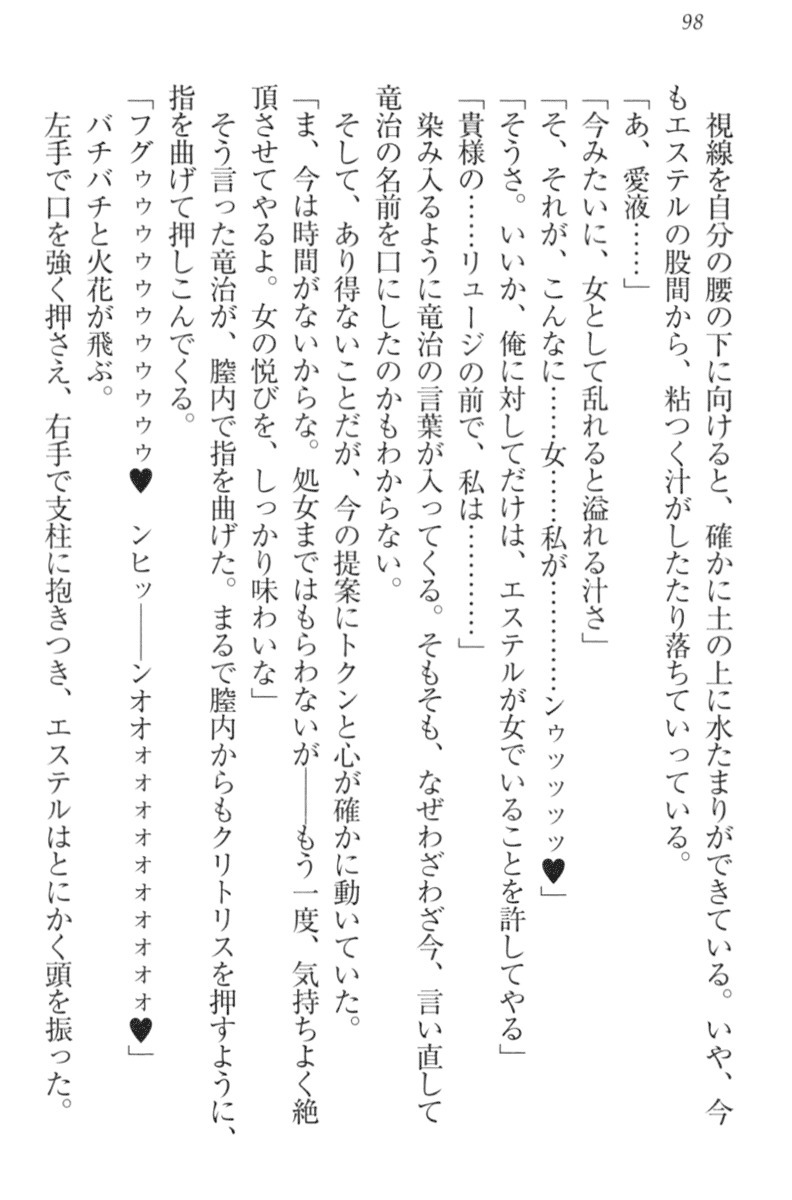 98
視線を自分の腰の下に向けると、確かに土の上に水たまりができている。いや、今
もエステルの股間から、粘つく汁がしたたり落ちていっている。
「あ、愛液……」
「今みたいに、女として乱れると溢れる汁さ」
「そ、それが、こんなに……女……私が…………ンゥッッッッ♥」
「そうさ。いいか、俺に対してだけは、エステルが女でいることを許してやる」
「貴様の……リュージの前で、私は…………」
染み入るように竜治の言葉が入ってくる。そもそも、なぜわざわざ今、言い直して
竜治の名前を口にしたのかもわからない。
そして、あり得ないことだが、今の提案にトクンと心が確かに動いていた。
「ま、今は時間がないからな。処女まではもらわないが――もう一度、気持ちよく絶
頂させてやるよ。女の悦びを、しっかり味わいな」
そう言った竜治が、膣内で指を曲げた。まるで膣内からもクリトリスを押すように、
指を曲げて押しこんでくる。
「フグゥゥゥゥゥゥゥゥゥゥゥ♥　ンヒッ――ンオオォォォォォォォォォォ♥」
バチバチと火花が飛ぶ。
左手で口を強く押さえ、右手で支柱に抱きつき、エステルはとにかく頭を振った。